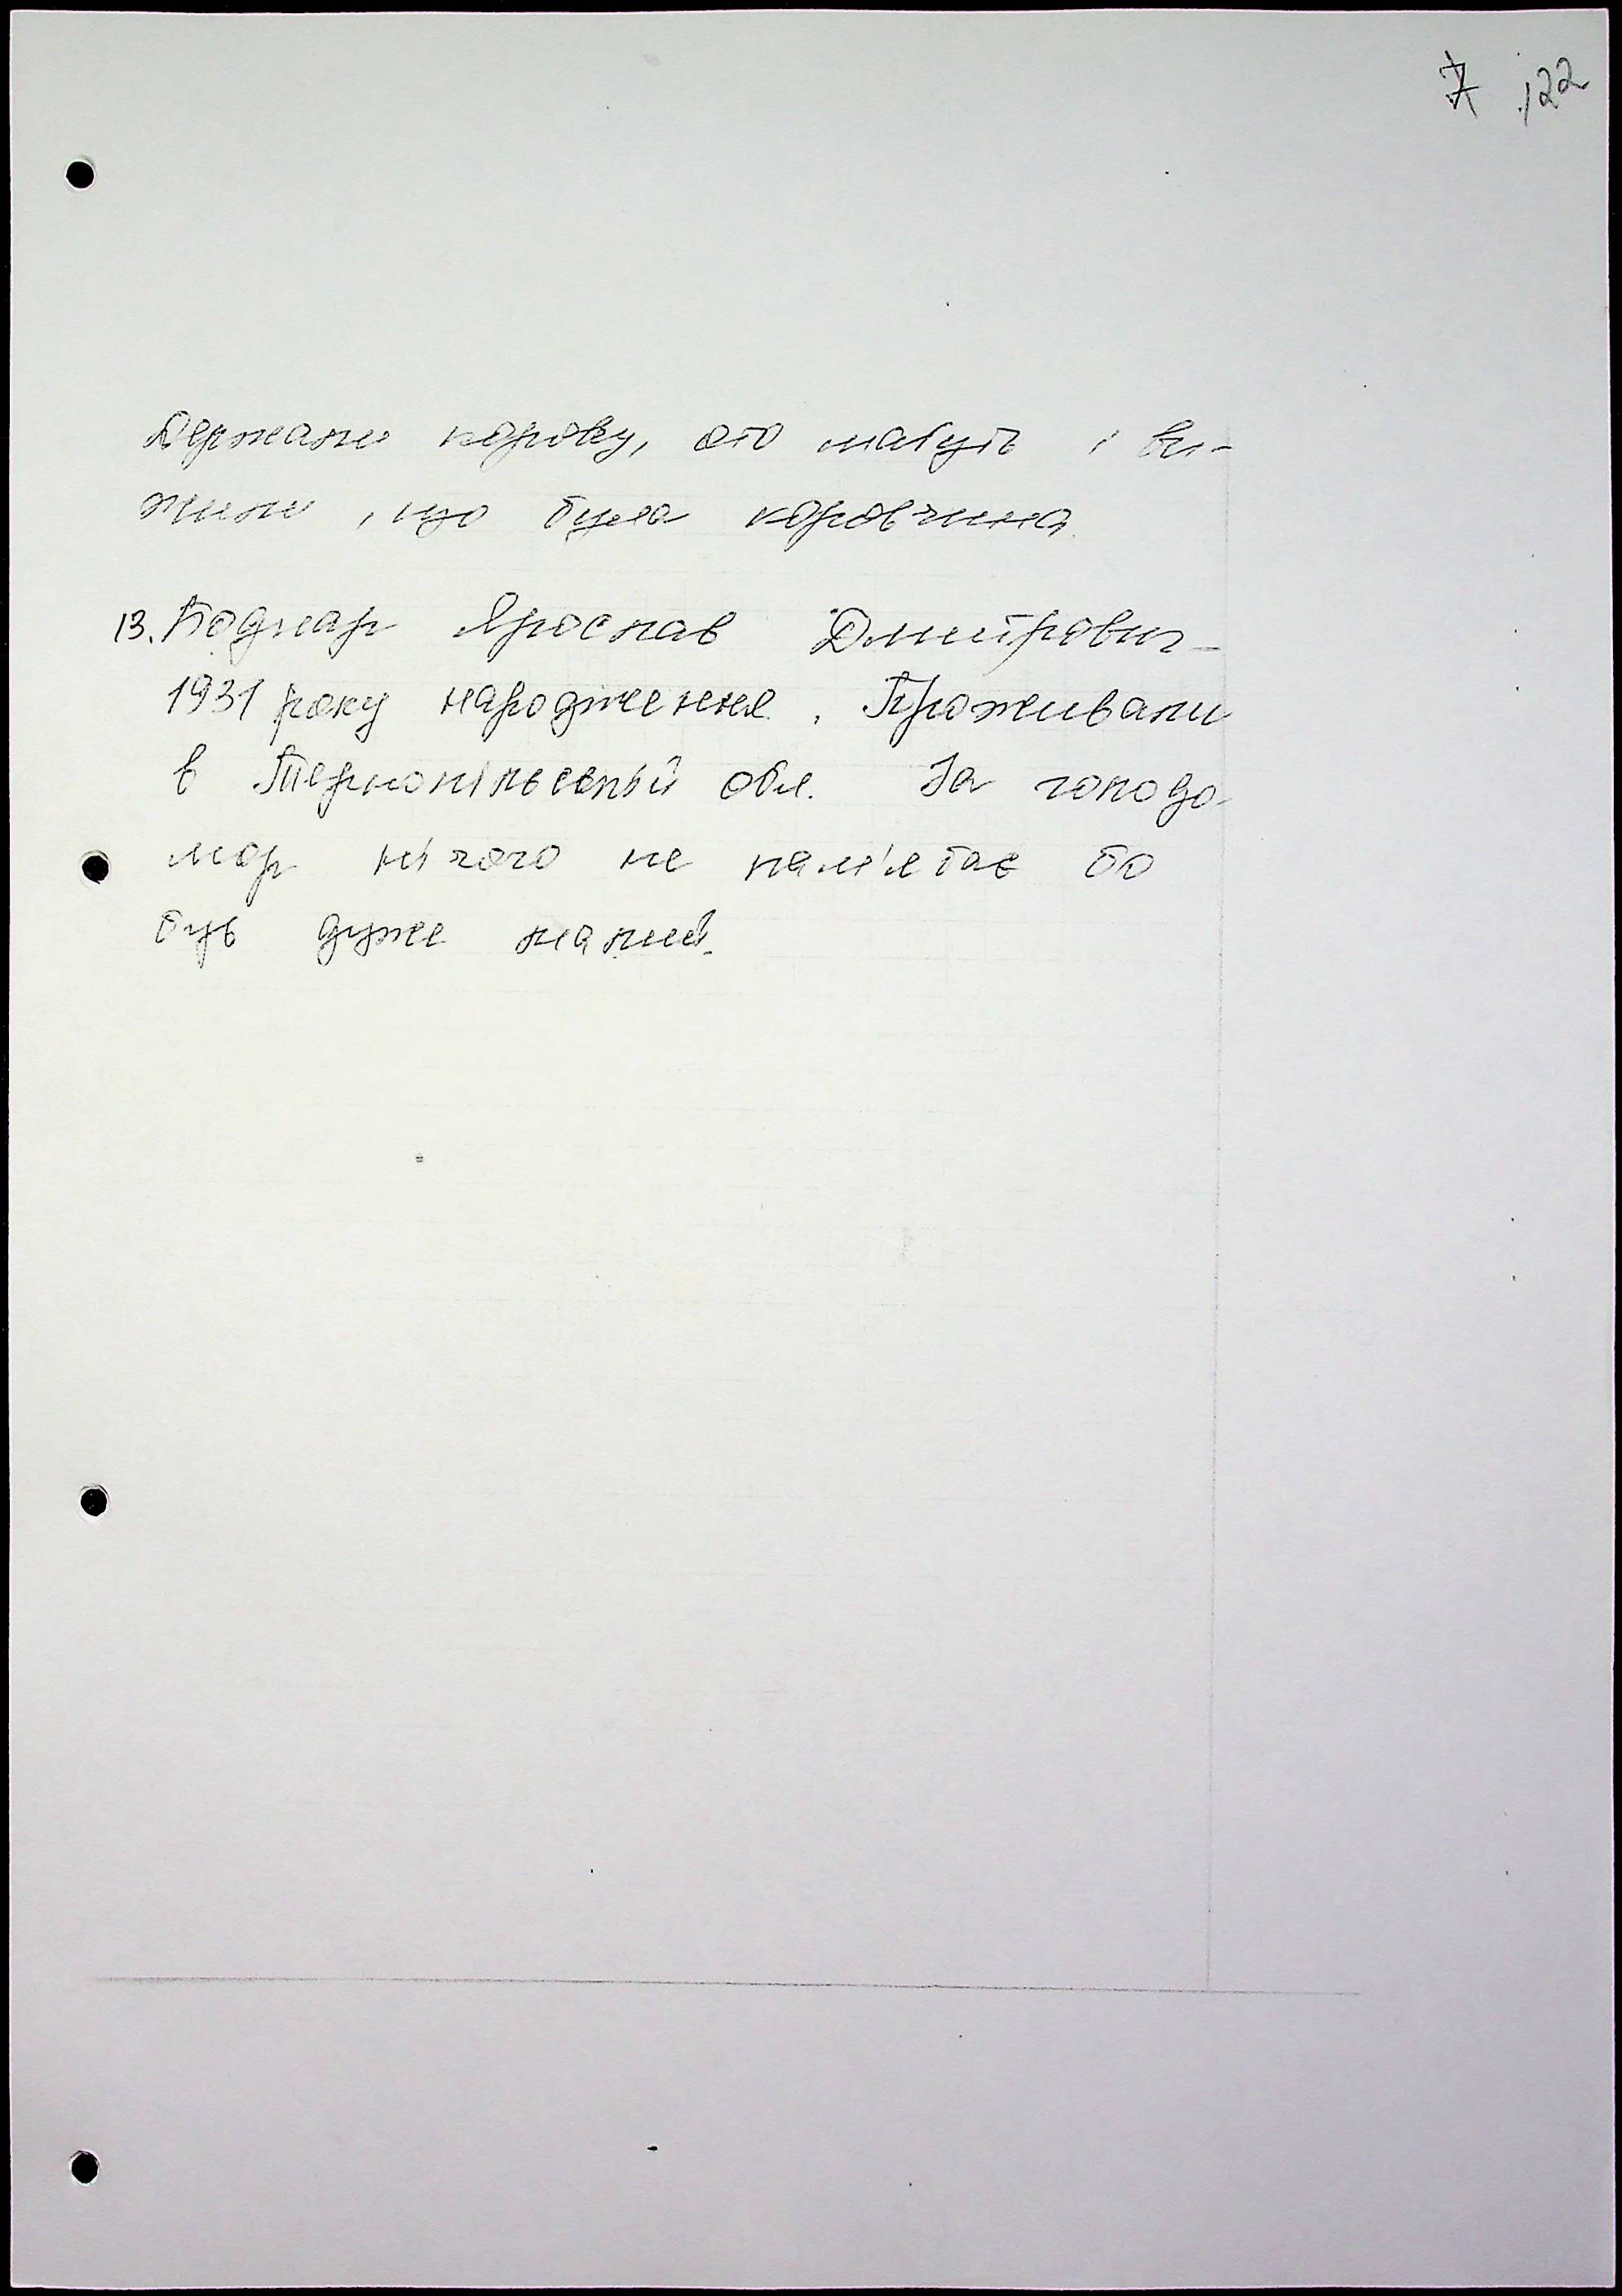 7 122
Держали корову, ото мабуть і ви-
жили, що була коровчина.
13. Боднар Ярослав Дмитрович -
1931 року народження. Проживали
в Тернопільській обл. За голодо-
мор нічого не пам'ятає бо
був дуже малий.